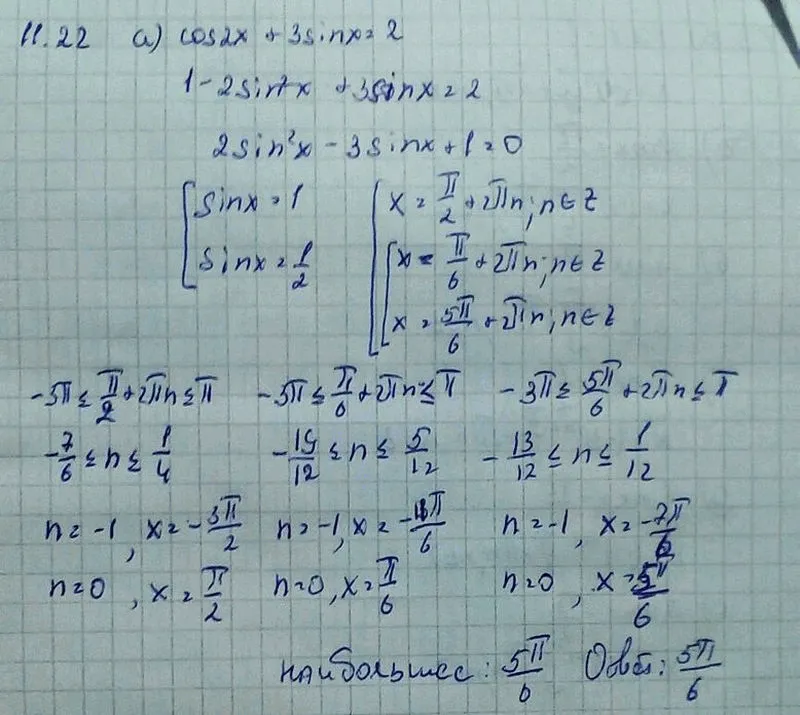 11.22 а) cos2x + 3sinx = 2
1 - 2sin²x + 3sinx = 2
2sin²x - 3sinx + 1 = 0
[ sinx = 1 [ x = π/2 + 2πn; n ∈ Z
[ sinx = 1/2 [ x = π/6 + 2πn; n ∈ Z
[ x = 5π/6 + 2πn; n ∈ Z
-3π ≤ π/2 + 2πn ≤ π -3π ≤ π/6 + 2πn ≤ π -3π ≤ 5π/6 + 2πn ≤ π
-7/6 ≤ n ≤ 1/4 -19/12 ≤ n ≤ 5/12 -13/12 ≤ n ≤ 1/12
n = -1, x = -3π/2 n = -1, x = -11π/6 n = -1, x = -7π/6
n = 0, x = π/2 n = 0, x = π/6 n = 0, x = 5π/6
наибольшее: 5π/6 Ответ: 5π/6